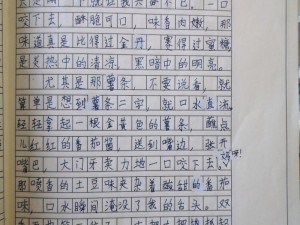 咬下去，酥脆可口，味香肉嫩，那
味道真是比得过金丹，赛得过蜜糖
是炎热中的清凉，黑暗中的明亮。
尤其是那薯条，不要说看，就
算单是想到薯条二字，就口水直流
轻轻拿起一根金黄色的薯条，蘸点
儿红红的番茄酱，送到嘴边，张开
嘴巴，大门牙卖力地一口咬下去。
喷香的土豆味夹杂着酸甜的番茄
味，口水瞬间淹没了我的舌头。双